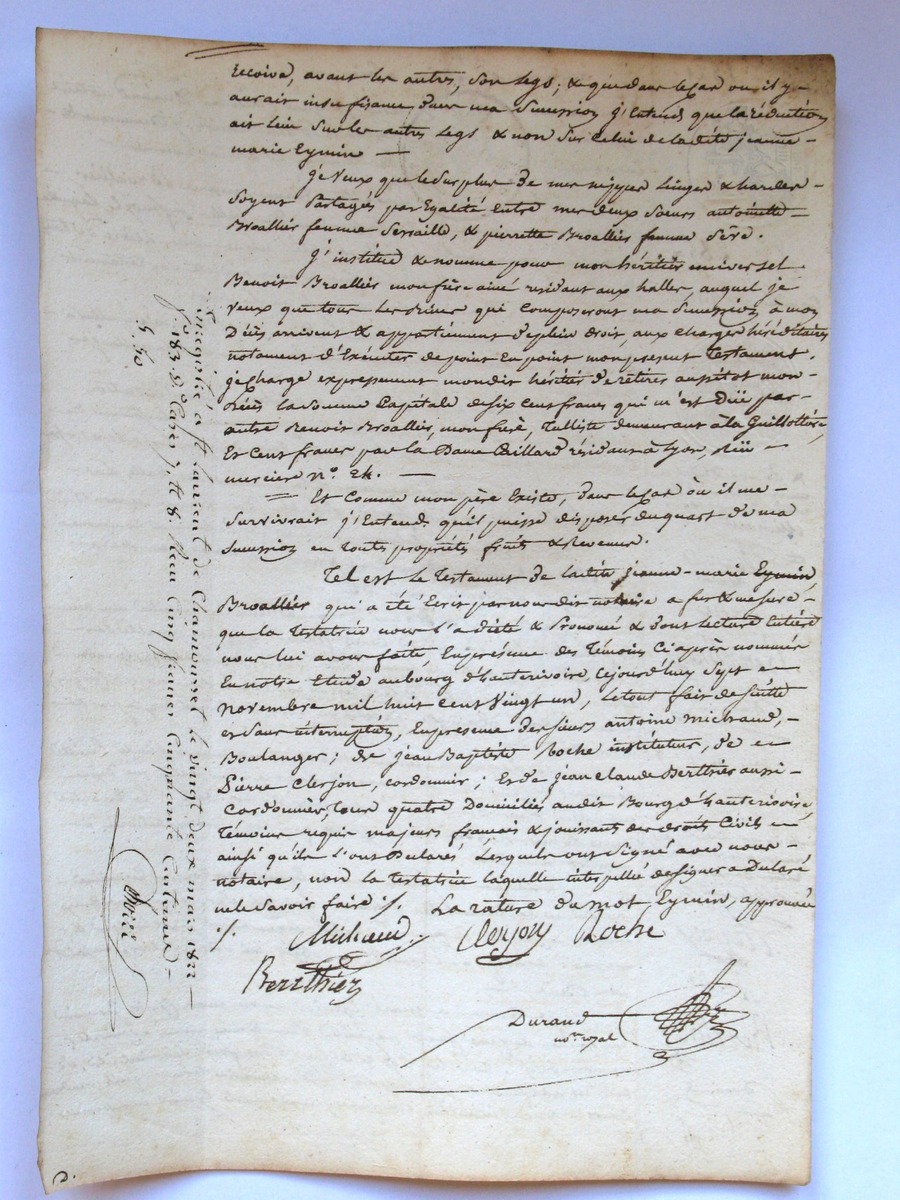 recoive, avant les autres, son legs; & que dans le cas ou il y-
aurait insufisance dans ma succession j'Entends que la réduction
ait lieu sur les autres legs & non sur celui de la dite jeanne-
marie Eymin —
je veux que le surplus de mes nippes linges & hardes -
soyent partagés par Egalité Entre mes deux Soeurs antoinette -
Broallier femme Serraille, & pierrette Broallier femme Sève.
j'institue & nomme pour mon héritier universel
Benoit Broallier mon frère ainé residant aux halles, auquel je
veux que tous les biens qui composeront ma succession à mon
Décès arrivent & appartiennent de plein droit, aux charges héréditaires
notament d'Exécuter de point En point mon present Testament.
je charge expressement mondit héritier de retirer aussitot mon-
Décès la somme Capitale de six cent francs qui m'est Düe par-
autre Benoit Broallier, mon frère, Tulliste demeurant à la Guillottière,
Et Cent francs par la Dame Caillard résidant à Lyon, Rüe -
merciere n.º 24. —
= Et Comme mon père Existe, dans le cas où il me -
survivrait j'Entends qu'il puisse disposer du quart de ma
succession en toute propriété fruits & Revenus.
Tel est le Testament de la dite jeanne-marie Eymin
Broallier qui a été Ecrit par nous dit notaire a fur & mesure -
que la Testatrice nous l'a dicté & prononcé & dont lecture Entière
nous lui avons faite, En presence des Témoins Ci après nommés
En notre Etude au bourg d'hauterivoire, Cejourd'huy Sept
novembre mil huit cent vingt un, le tout fait de suitte
et sans interruption, En presence des sieurs antoine michaud, -
Boulanger; de jean Baptiste Roche instituteur, de
Pierre Clerjon, cordonnier; Et de jean Claude Berthier aussi -
Cordonnier, tous quatre Domiciliés audit Bourg d'hauterivoire
Témoins requis majeurs français & jouissants des droits Civils
ainsi qu'ils l'ont Declarés, Lesquels ont signé avec nous -
notaire, non la testatrice laquelle interpellée de signer a Declaré
ne le savoir faire ./. La rature du mot, Eymin, approuvée
./. Michaud Clerjon Roche
Berthier
Durand
no.re royal
Enregistré à st Laurent de Chamousset le vingt deux mars 1822 —
f.º 183. v.º Cases 7, et 8. Reçu Cinq francs Cinquante Centimes —
5. 50